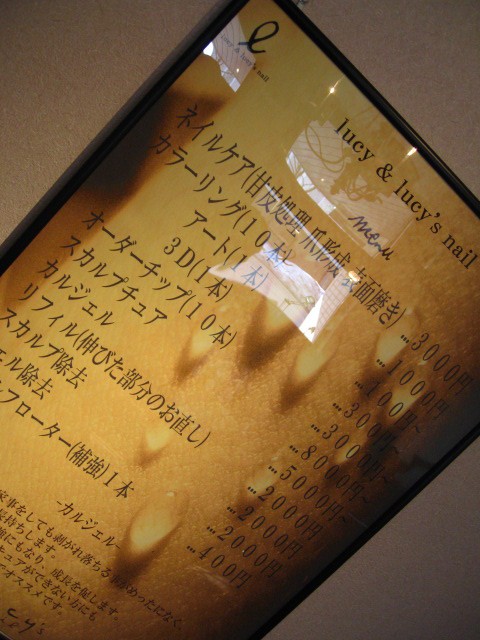 lucy & lucy's nail
lucy & lucy's nail
menu
ネイルケア(甘皮処理 爪形成 表面磨き) …3000円
カラーリング(10本) …1000円
アート(1本) …100円~
3D(1本) …300円~
オーダーチップ(10本) …3000円~
スカルプチュア …8000円~
カルジェル …5000円~
リフィル(伸びた部分のお直し) …2000円
スカルプ除去 …2000円
ェル除去 …2000円
フローター(補強)1本 …400円
-カルジェル-
家事をしても剥がれ落ちる がめったになく
長持ちします。
強にもなり、成長を促します。
チュアができない方にも
オススメです。